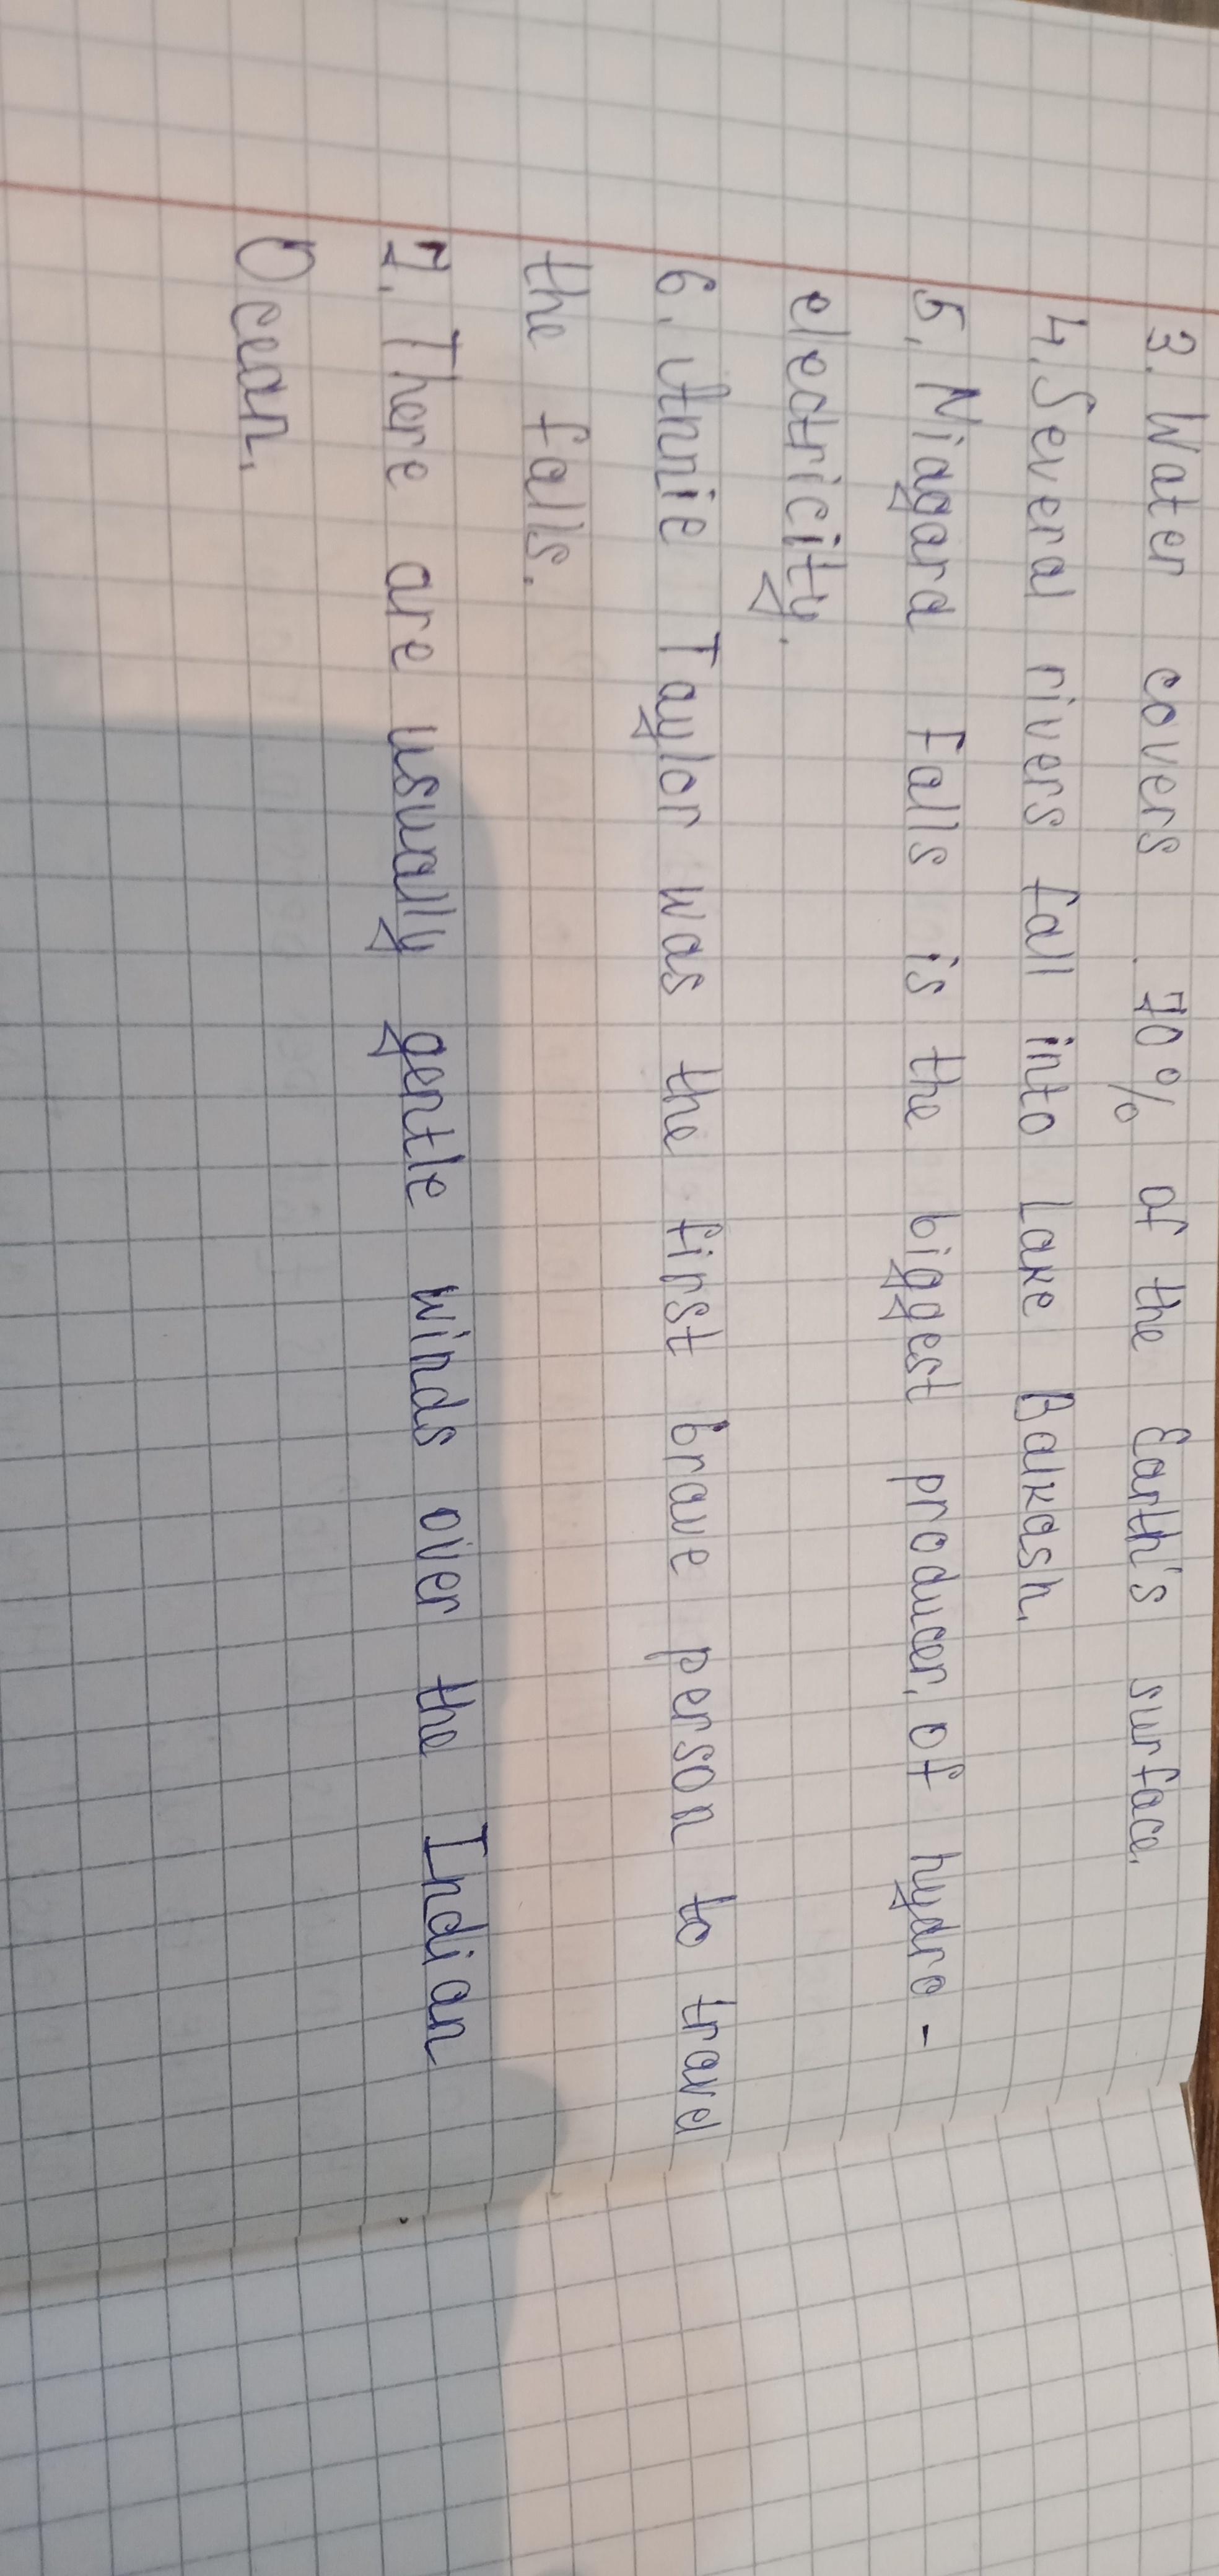 3. Water covers 70% of the Earth's surface.
4. Several rivers fall into Lake Balkash.
5. Niagara Falls is the biggest producer, of hydro -
electricity.
6. Annie Taylor was the first brave person to travel
the falls.
7. There are usually gentle winds over the Indian
Ocean.